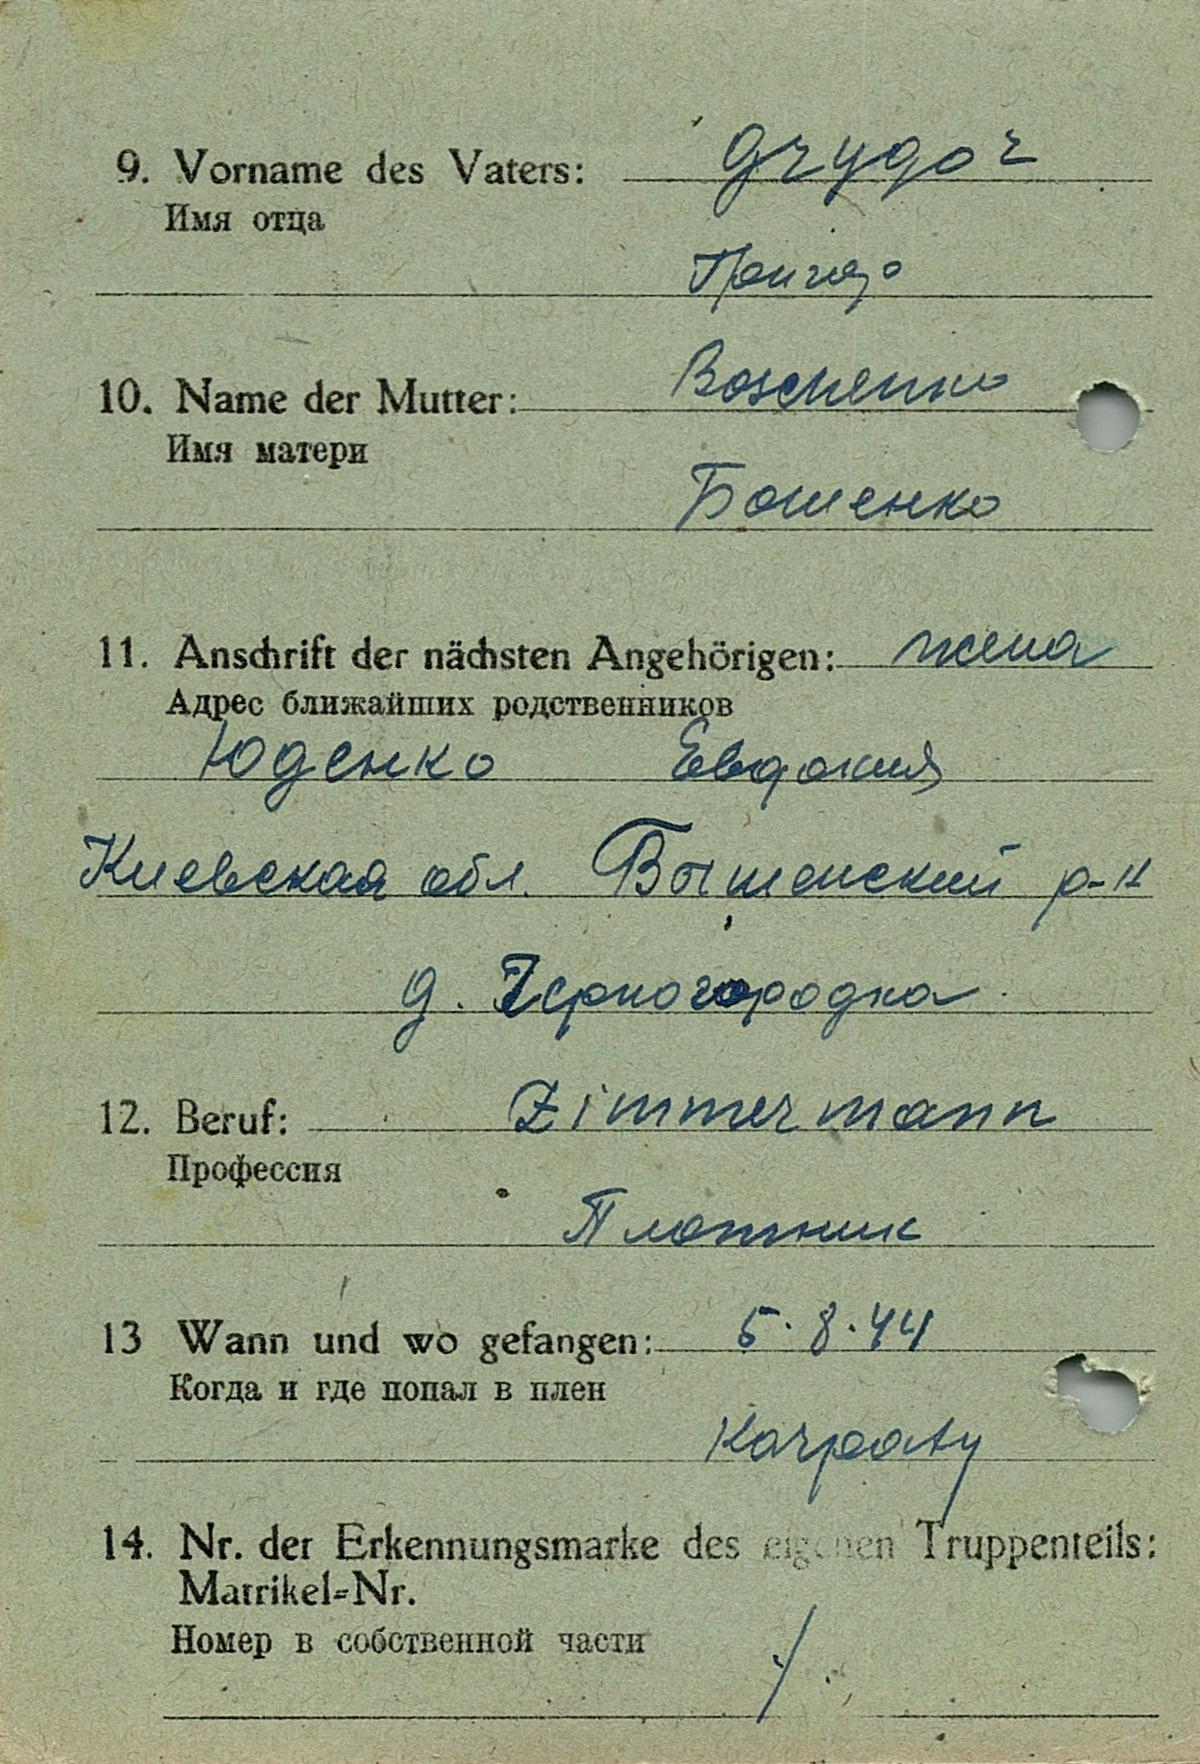 9. Vorname des Vaters: Grygor
Имя отца
10. Name der Mutter: Boschenko
Имя матери
Бошенко
11. Anschrift der nächsten Angehörigen: жена
Адрес ближайших родственников
Юденко Евдокия
Киевская обл. Вышенский р-н
д. Черногородка
12. Beruf: Zimmermann
Профессия
Плотник
13 Wann und wo gefangen: 5.8.44
Когда и где попал в плен
Karpaty
14. Nr. der Erkennungsmarke des eigenen Truppenteils:
Matrikel=Nr.
Номер в собственной части